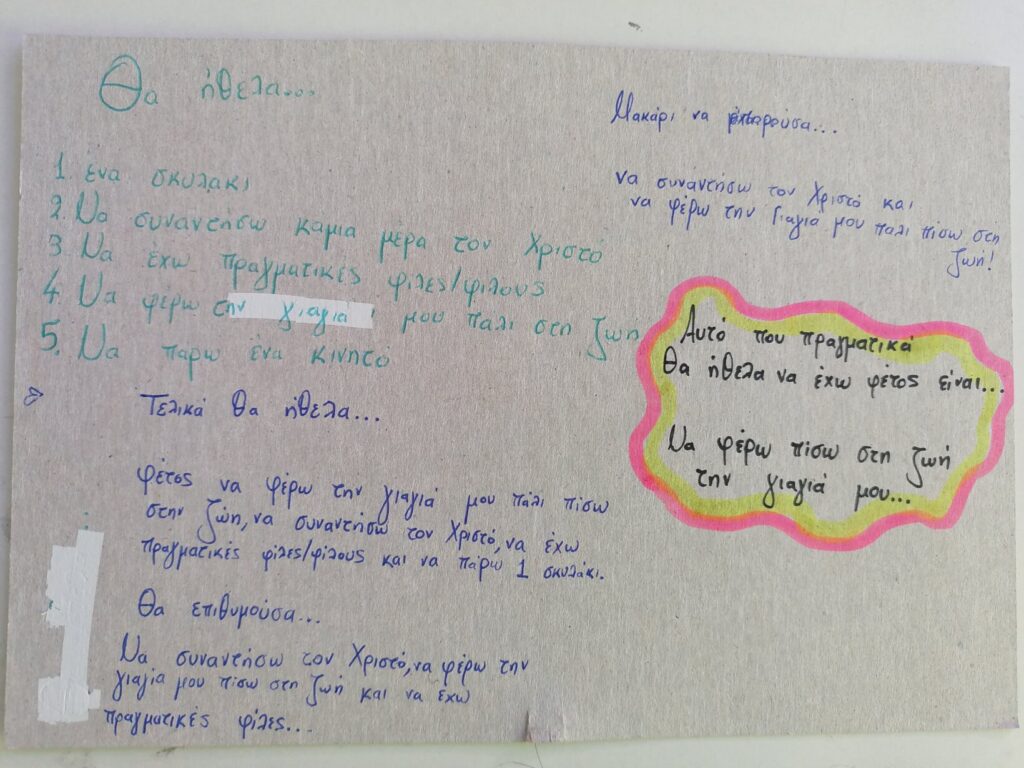 Θα ήθελα...
1. ένα σκυλάκι
2. Να συναντήσω καμια μέρα τον Χριστό
3 Να έχω πραγματικές φιλες/φιλους
4. Να φέρω την γιαγια μου παλι στη ζωή
5. Να παρω ένα κινητό
Τελικά θα ήθελα...
φέτος να φέρω την γιαγιά μου πάλι πίσω
στην ζώη, να συναντήσω τον Χριστό, να έχω
πραγματικές φίλες/φίλους και να πάρω 1 σκυλάκι.
Θα επιθυμούσα...
Να συναντήσω τον Χριστό, να φέρω την
γιαγία μου πίσω στη ζωή και να έχω
πραγματικές φίλες...
Μακάρι να μπορούσα...
να συναντήσω τον Χριστό και
να φέρω την γιαγία μου παλι πίσω στη
ζωή!
Αυτό που πραγματικά
θα ήθελα να έχω φέτος είναι...
Να φέρω πίσω στη ζωή
την γιαγιά μου...